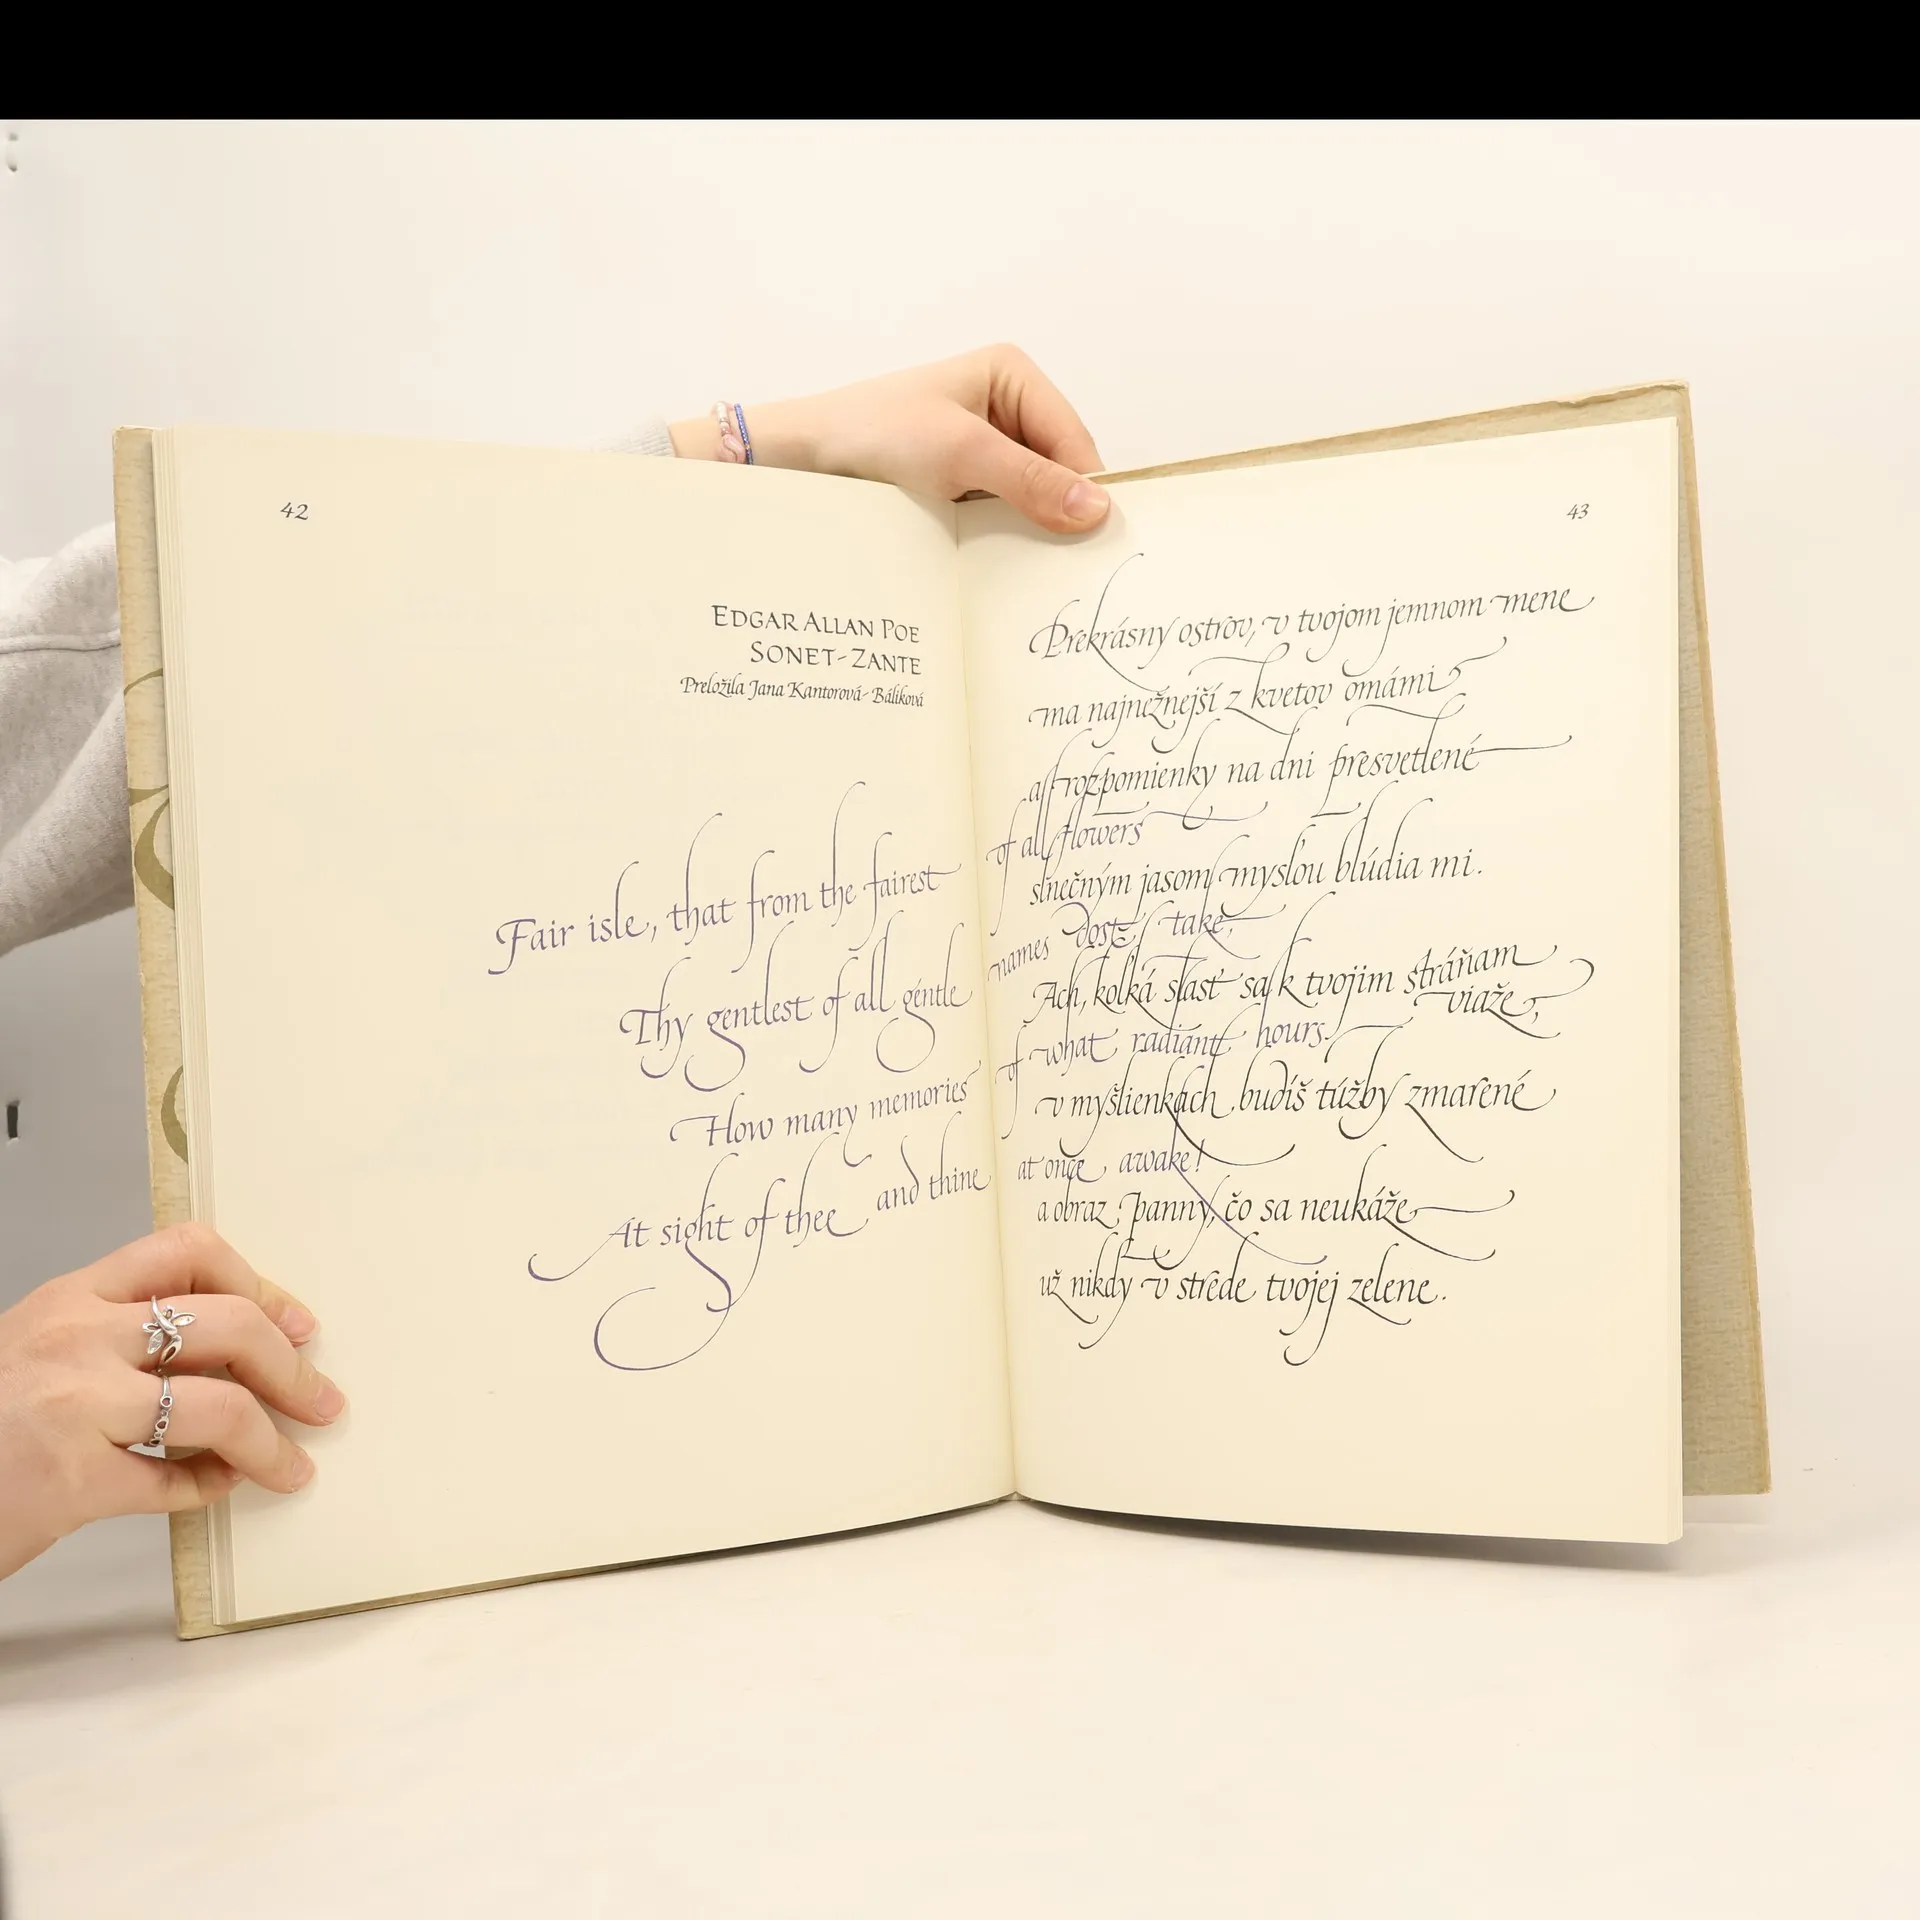 42
EDGAR ALLAN POE
SONET-ZANTE
Preložila Jana Kantorová-Báliková
Fair isle, that from the fairest of all flowers
Thy gentlest of all gentle names dost take,
How many memories of what radiant hours
At sight of thee and thine at once awake!
43
Prekrásny ostrov, v tvojom jemnom mene
ma najnežnejší z kvetov omámi
a rozpomienky na dni presvetlené
slnečným jasom mysľou blúdia mi.
Ach, koľká slasť sa k tvojim stráňam viaže,
v myšlienkach budíš túžby zmarené
a obraz panny, čo sa neukáže
už nikdy v strede tvojej zelene.